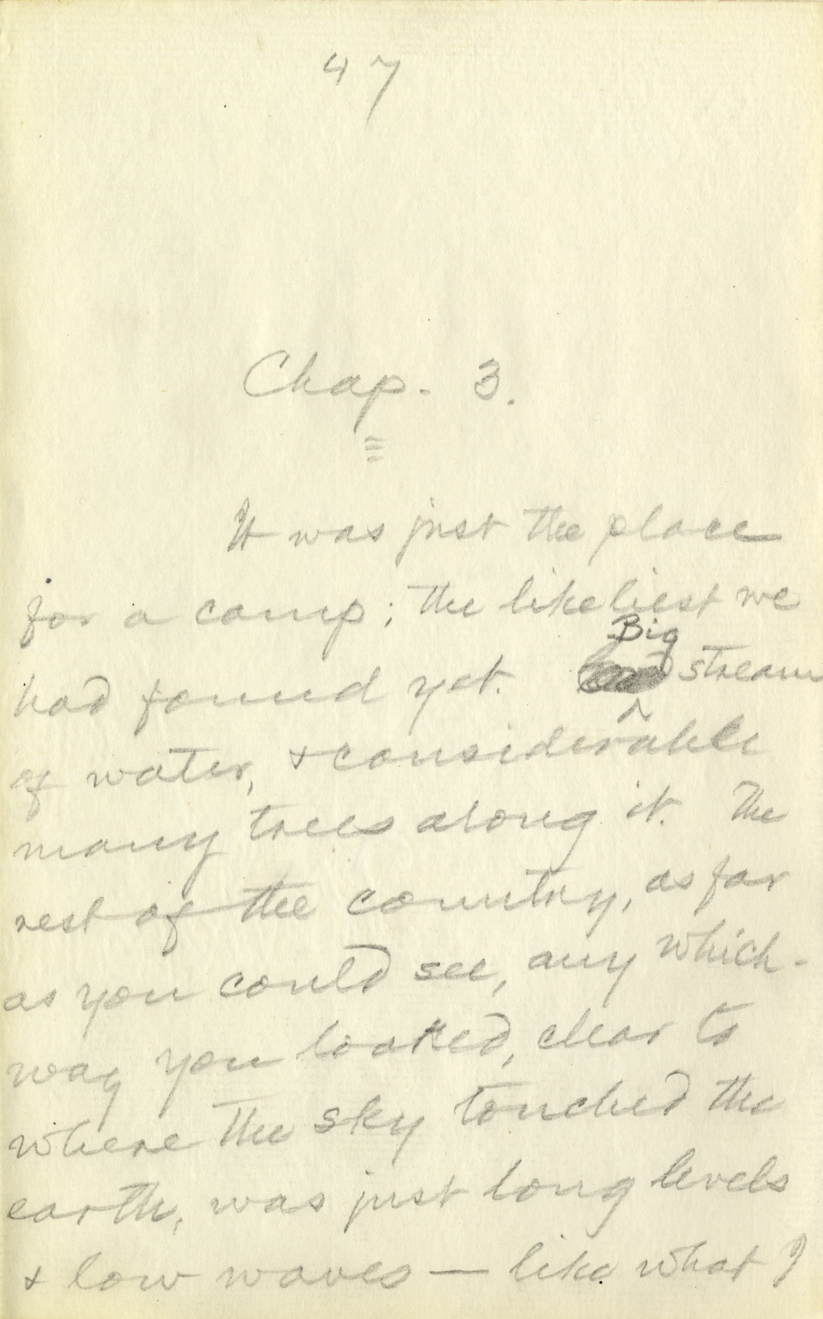 47
Chap. 3.
It was just the place
for a camp; the likeliest we
had found yet. Big stream
of water, & considerable
many trees along it. The
rest of the country, as far
as you could see, any which-
way you looked, clear to
where the sky touched the
earth, was just long levels
& low waves — like what I